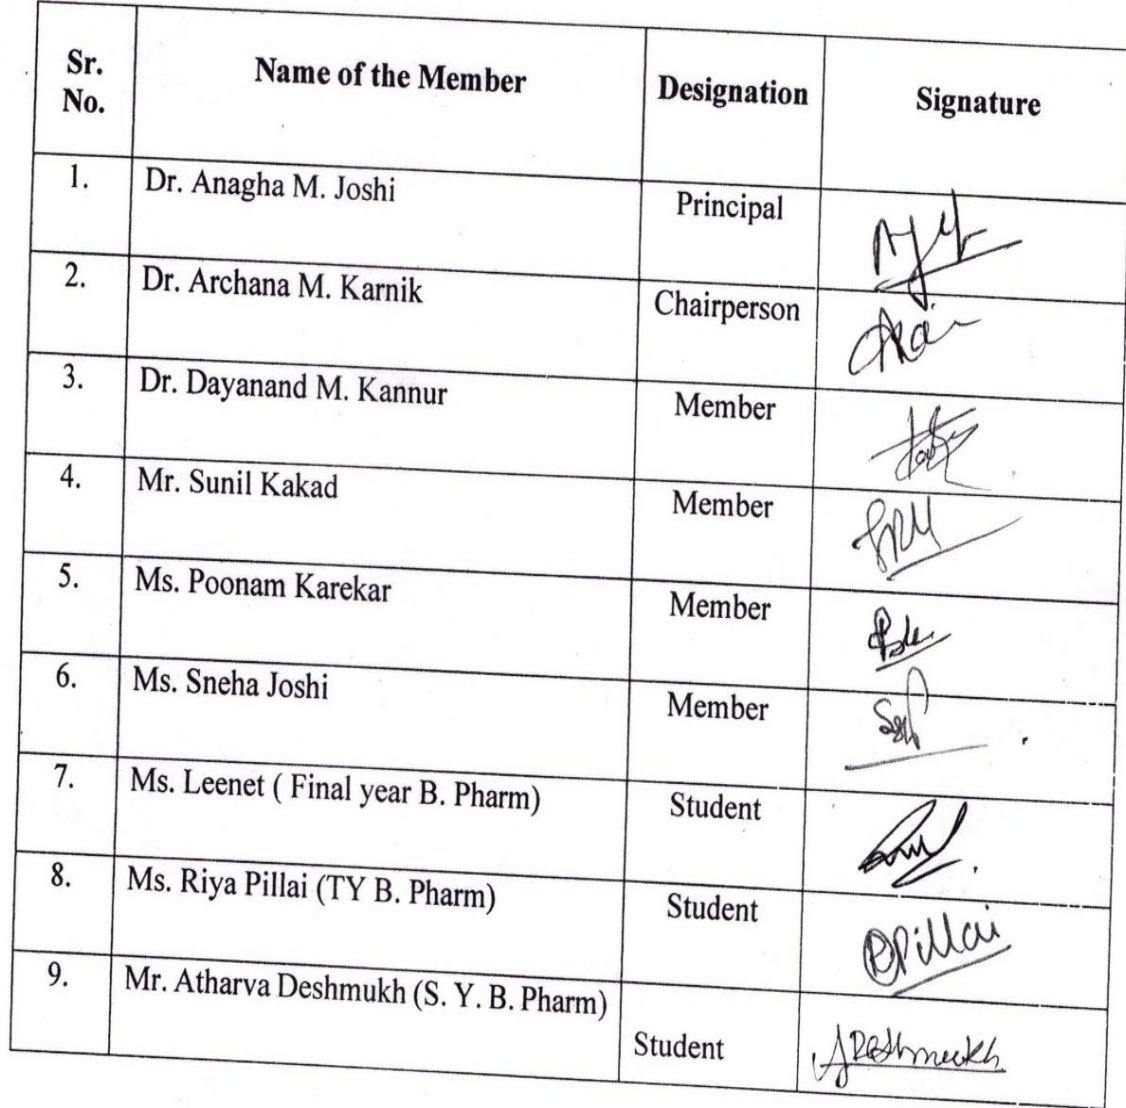 Sr. No. Name of the Member Designation Signature
1. Dr. Anagha M. Joshi Principal
2. Dr. Archana M. Karnik Chairperson
3. Dr. Dayanand M. Kannur Member
4. Mr. Sunil Kakad Member
5. Ms. Poonam Karekar Member
6. Ms. Sneha Joshi Member
7. Ms. Leenet ( Final year B. Pharm) Student
8. Ms. Riya Pillai (TY B. Pharm) Student RPillai
9. Mr. Atharva Deshmukh (S. Y. B. Pharm) Student ADeshmukh